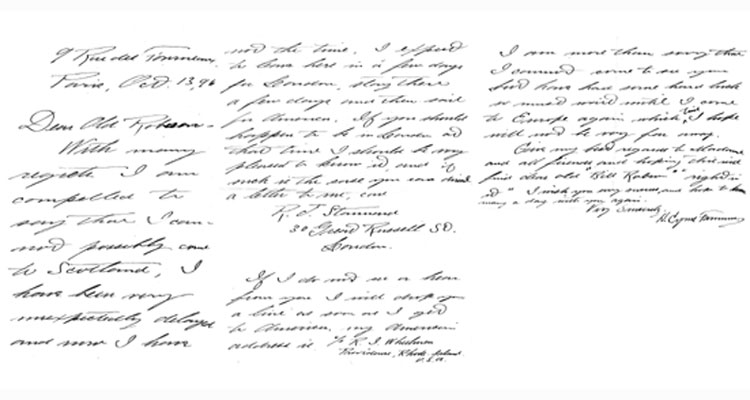 9 Rue des
Paris, Oct. 13, 96
Dear Old Robson.
With many
regrets I am
compelled to
say that I can-
not possibly come
to Scotland, I
have been very
unexpectedly delayed
and now I have
not the time. I expect
to leave here in a few days
for London, stay there
a few days and then sail
for America. If you should
happen to be in London at
that time I should be very
pleased to know it, and if
such is the case you can
a letter to me, care
R. J.
30 Great Russell St.
London.
If I do not see or hear
from you I will drop you
a line as soon as I get
to America, my American
address is c/o R. J.
Providence, Rhode Island.
U.S.A.
I am more than sorry that
I cannot come to see you
but have had some hard luck
so must wait until I come
to Europe again which I hope
will not be very far away.
Give my best regards to
and all friends and hoping this will
find dear old "Bill " "right in
it" I wish you any and hope to
many a day with you again.
Very Sincerely
H. Cyrus